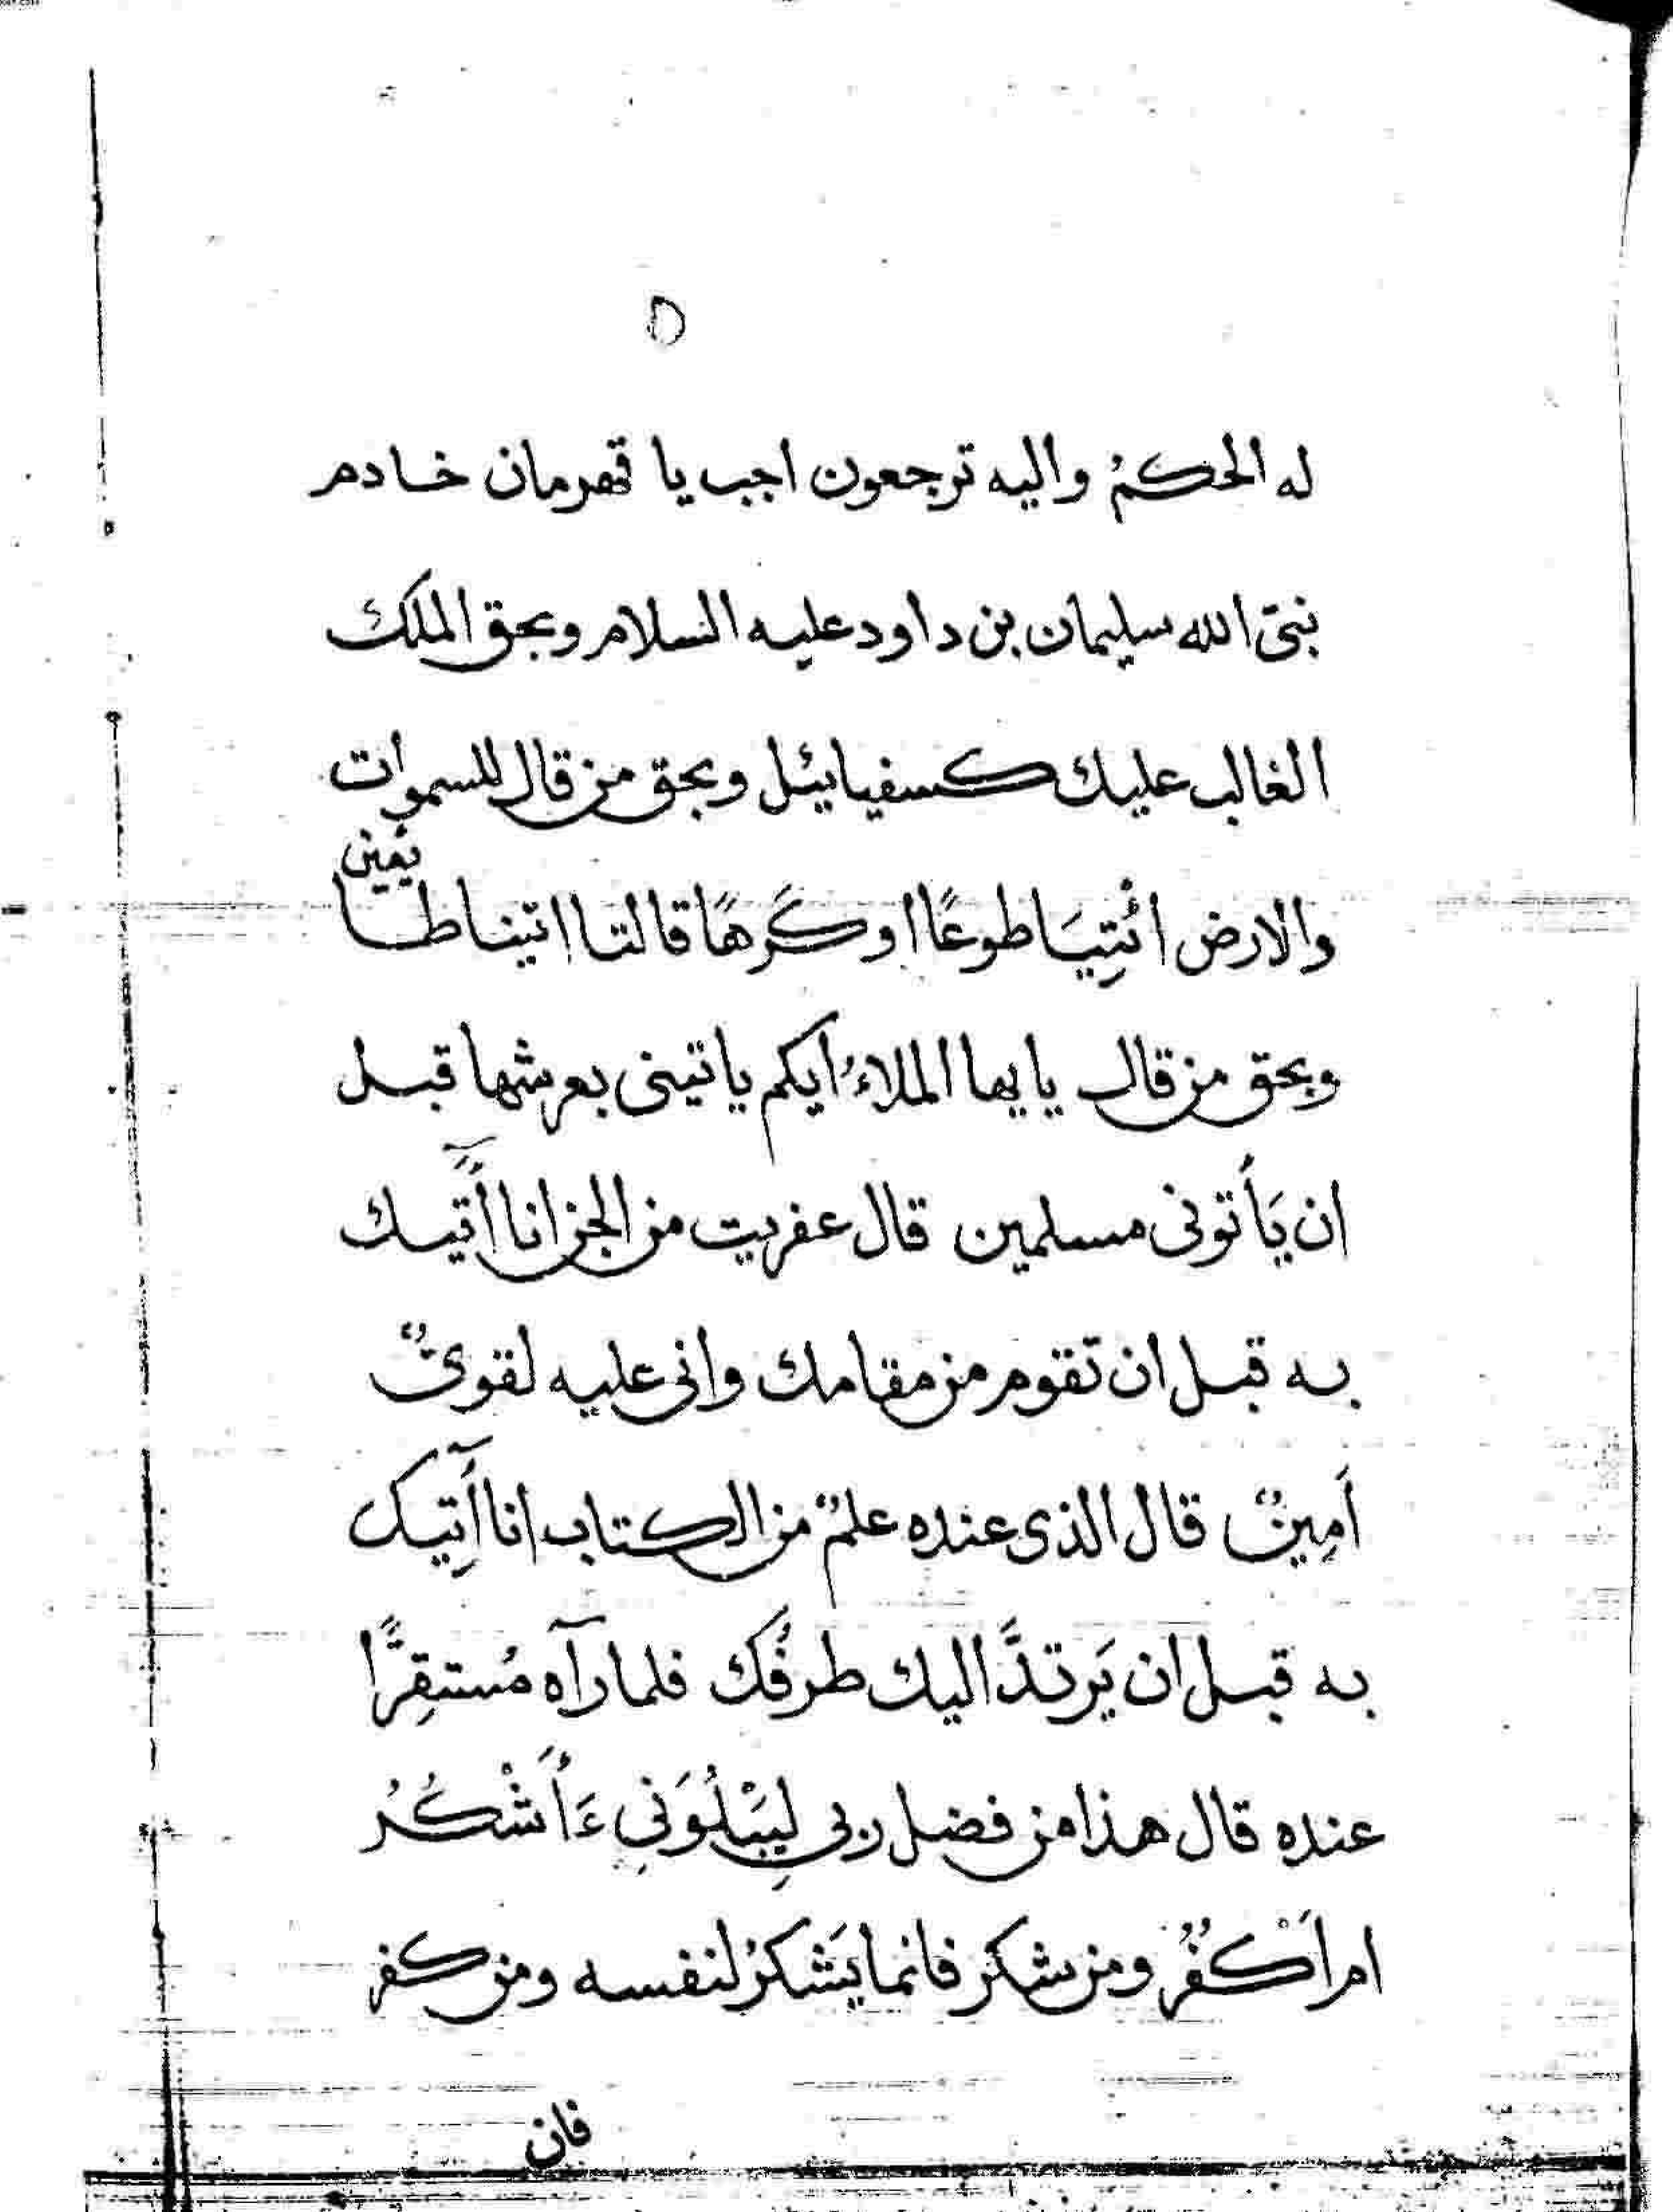 ٥
له الحكمُ واليه ترجعون اجب يا قهرمان خادم
نبى الله سليمان بن داود عليه السلام وبحق الملك
الغالب عليك كسفيائيل وبحق من قال للسموات
والارض ائْتِيَا طوعًا او كَرهًا قالتا اتينا طا
ئعين
وبحق من قال يايها الملاءُ ايكم ياتينى بعرشها قبل
ان يَأتونى مسلمين قال عفريت من الجن انا أَتيك
به قبل ان تقوم من مقامك وانى عليه لقوىٌّ
أَمِينٌ قال الذى عنده علمٌ من الكتاب انا أَتِيك
به قبل ان يَرتدَّ اليك طرفُك فلما رآه مُستقِرًّا
عنده قال هذا من فضل ربى لِيَبْلُوَنِى ءَأَشْكُرُ
ام أَكْفُرُ ومن شكر فانما يَشكرُ لنفسه ومن كفر
فان